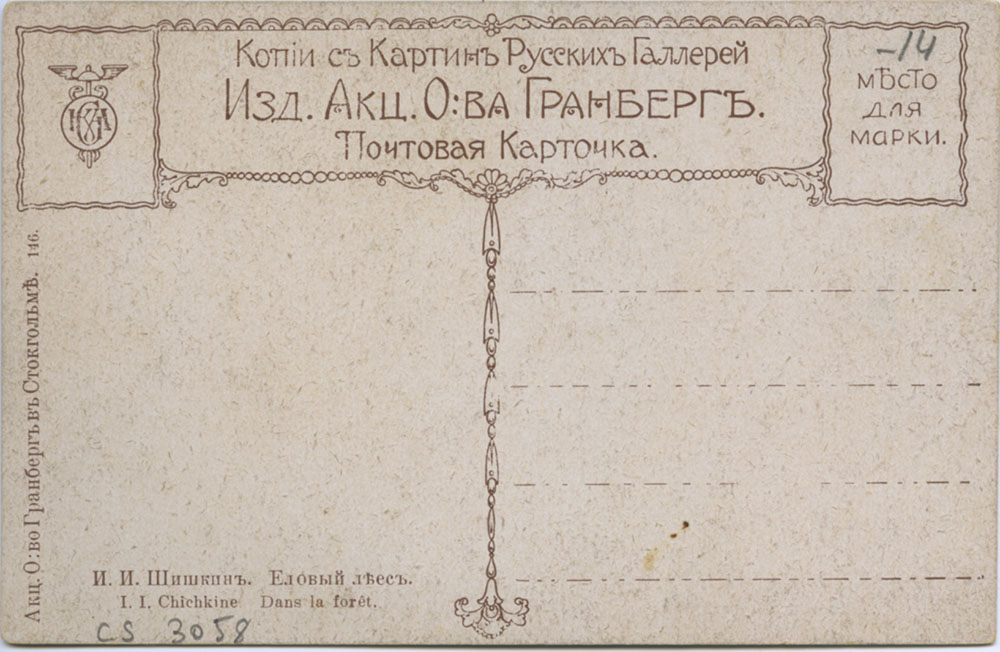 Копіи съ Картинъ Русскихъ Галлерей
Изд. Акц. О:ва Гранбергъ.
Почтовая Карточка.
-14
мѣсто
для
марки.
Акц. О:во Гранбергъ въ Стокгольмѣ. 146.
И. И. Шишкинъ. Еловый лѣсъ.
I. I. Chichkine Dans la forêt.
CS 3058